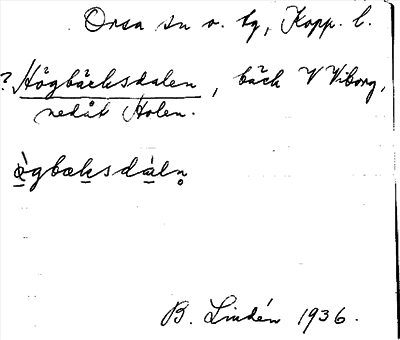 Orsa sn o. tg, Kopp. l.
? Högbäcksdalen, bäck V Viborg,
nedåt Holen.
ø̀gbæksdáln̥
B. Lindén 1936.